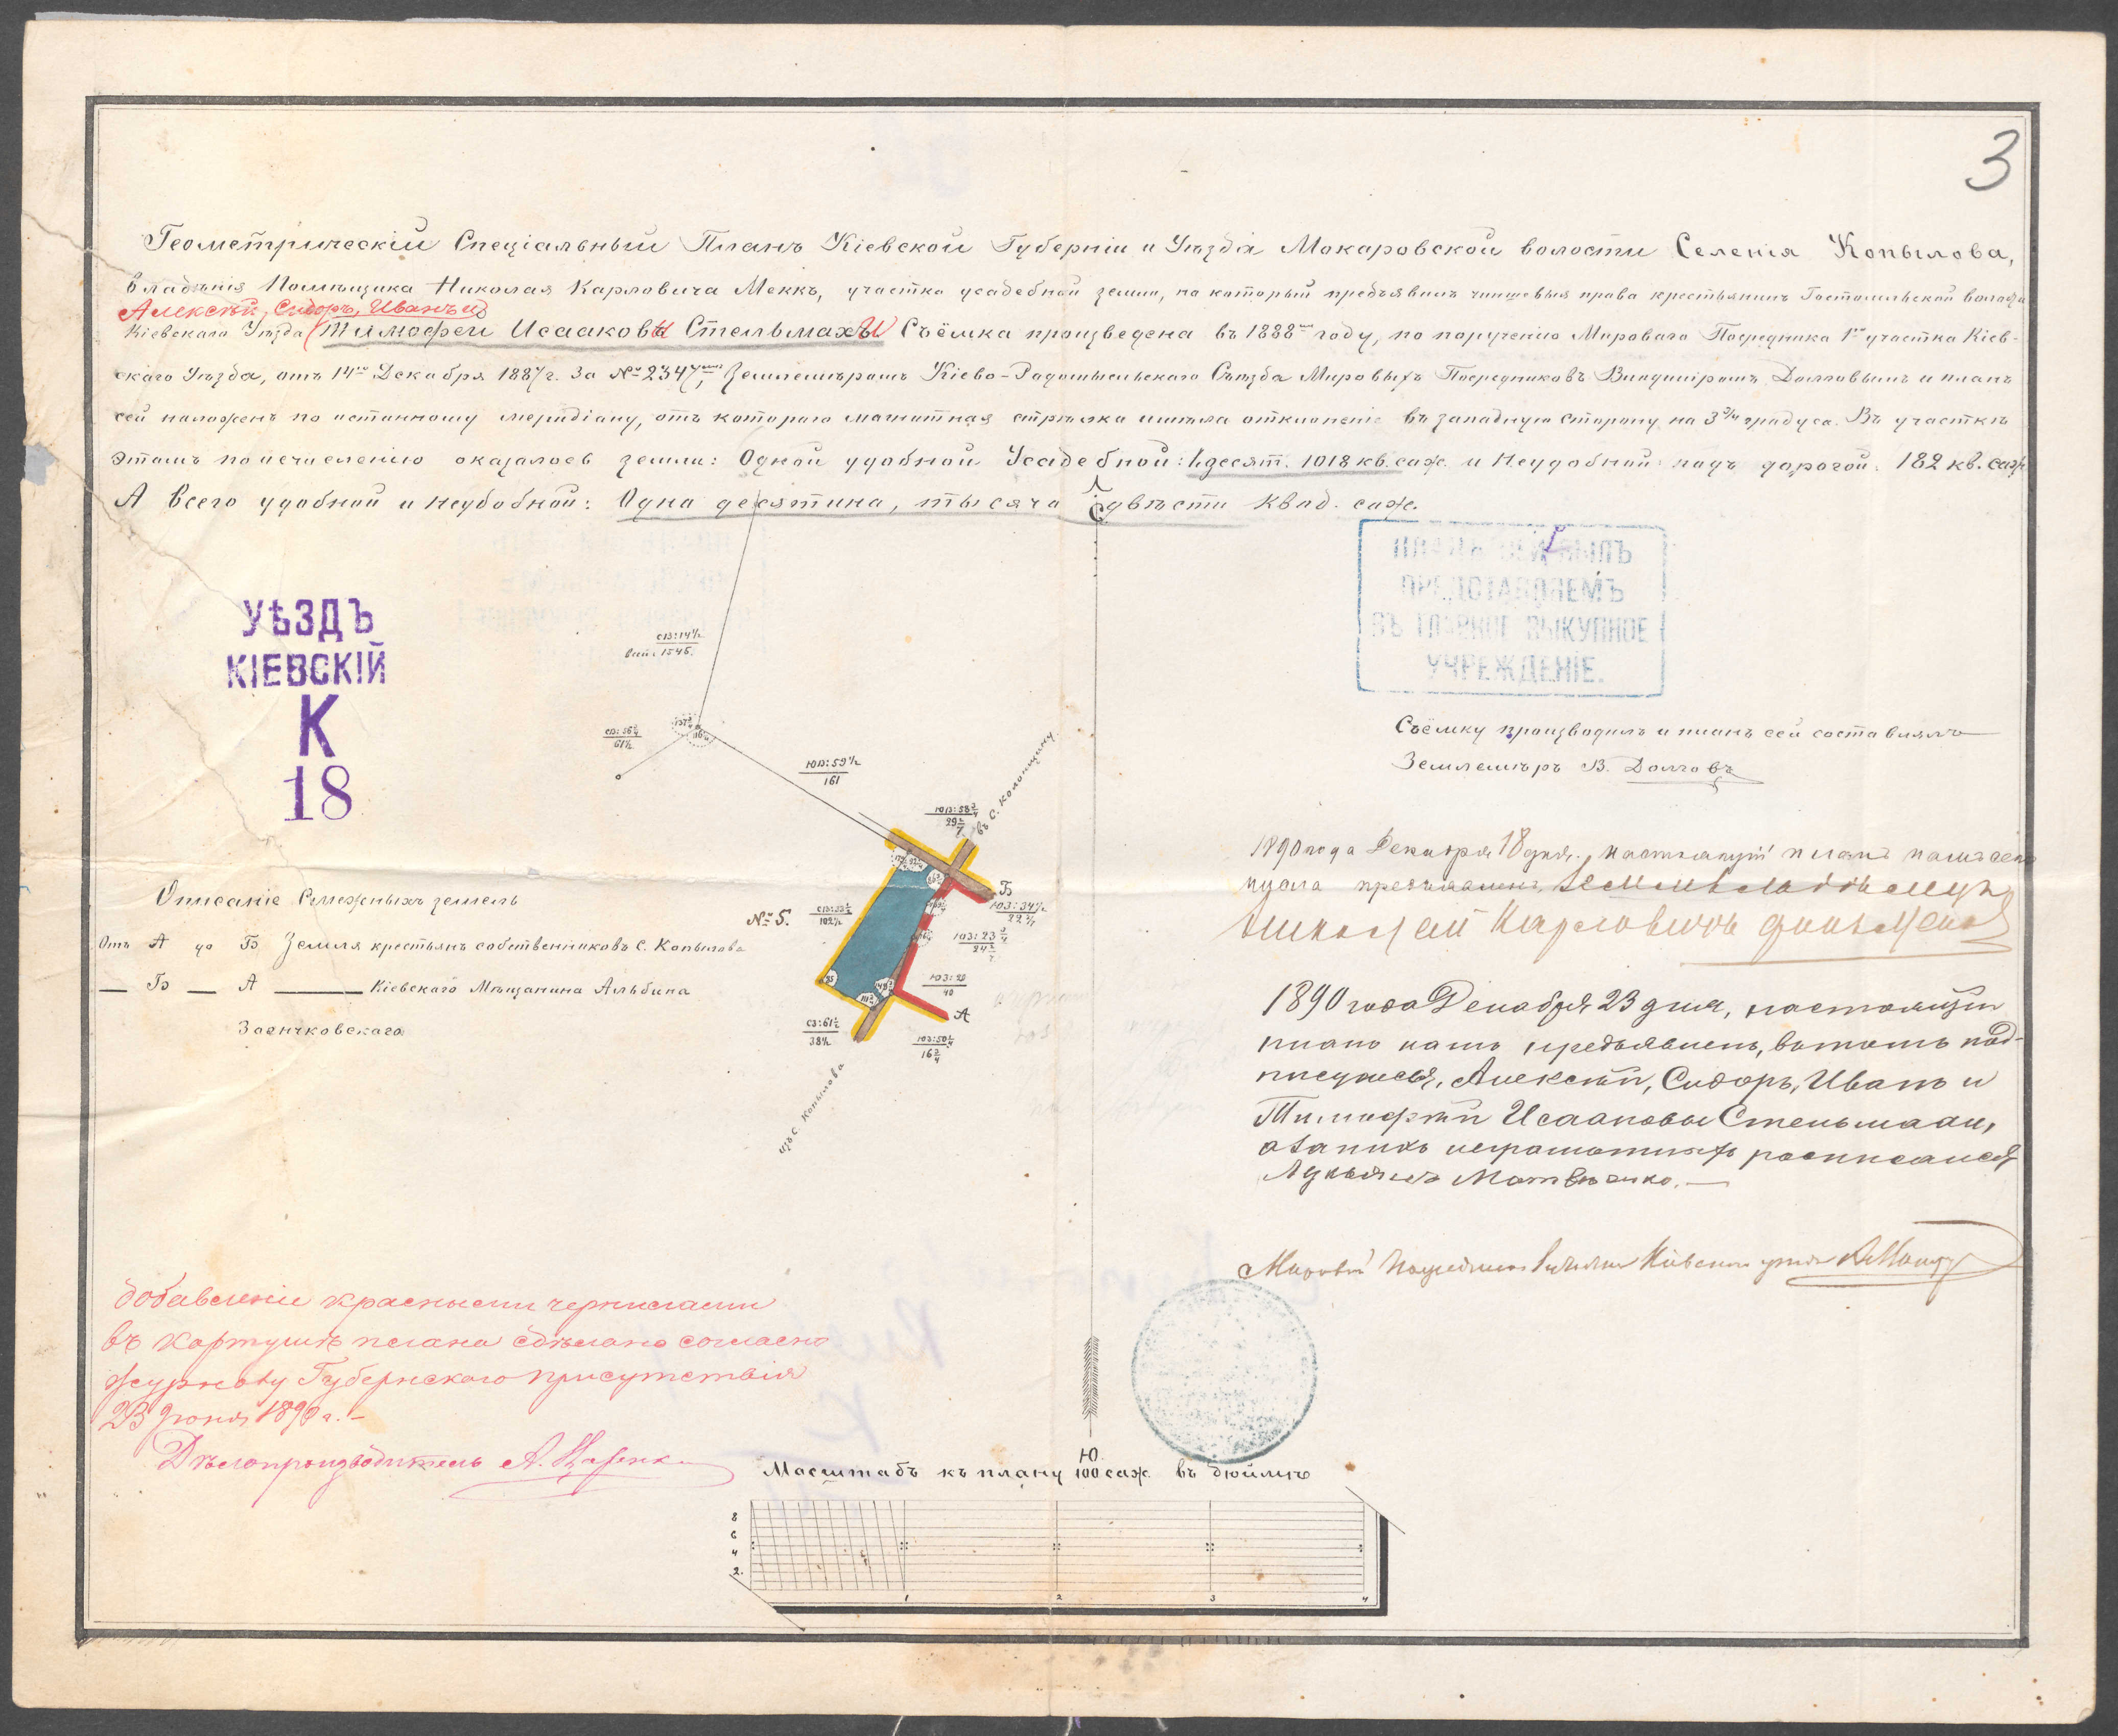 3
Геометрическій Спеціальный Планъ Кіевской Губерніи и Уѣзда Макаровской волости Селенія Копылова,
владѣнія Помѣщика Николая Карловича Меккъ, участка усадебной земли, на который предъявилъ чиншевыя права крестьянинъ Гостомльской волости
Алексѣй, Сидоръ, Иванъ и
Кіевскаго Уѣзда Тимофей Исааковы Стельмахъи Съёмка произведена въ 1888мъ году, по порученію Мироваго Посредника 1го участка Кіев-
скаго Уѣзда, отъ 14го Декабря 1887 г. За № 2347, Землемѣромъ Кіево-Радомысльскаго Съѣзда Мировыхъ Посредниковъ Владиміромъ Долговымъ и планъ
сей наложенъ по истинному меридіану, отъ котораго магнитная стрѣлка имѣла отклоненіе въ западную сторону на 3 3/4 градуса. Въ участкѣ
этомъ по исчисленію оказалось земли: Одной удобной Усадебной: 1 десят. 1018 кв. саж. и Неудобной: подъ дорогой: 182 кв. саж.
А всего удобной и неудобной: Одна десятина, тысяча двѣсти квад. саж.
С
УѢЗДЪ
КІЕВСКІЙ
К
18
ПЛАНЪ СЕЙ БЫЛЪ
ПРЕДСТАВЛЯЕМЪ
ВЪ ГЛАВНОЕ ВЫКУПНОЕ
УЧРЕЖДЕНІЕ.
Съёмку производилъ и планъ сей составлялъ
Землемѣръ В. Долговъ
СВ: 14½
1545.
61½
ЮВ: 59½
161
ЮВ: 58¾
въ С. Копонщину
Б
ЮЗ: 34½
22
№ 5.
102½
ЮЗ: 23¾
24
ЮЗ: 20
40
А
СЗ: 61½
38½
16¾
изъ С. Копылова
Описаніе Смежныхъ земель
Отъ А до Б Земля крестьянъ собственниковъ С. Копылова
— Б — А — Кіевскаго Мѣщанина Альбина
Заенчковскаго
1890 года Декабря 18 дня, настоящій планъ
предъявленъ землевладѣльцу
Николай Карловичъ фонъ Меккъ
1890 года Декабря 23 дня, настоящій
планъ намъ предъявленъ, въ томъ под-
писуемся, Алексѣй, Сидоръ, Иванъ и
Тимофѣй Исааковы Стельмахи,
а за нихъ неграмотныхъ росписался
Лукьянъ Матвѣенко.
Мировой Посредникъ Кіевскаго уѣзда
добавленіе красными чернилами
въ картушѣ плана сдѣлано согласно
журналу Губернскаго присутствія
23 Іюня 1890 г.
Дѣлопроизводитель А.
Ю
Масштабъ къ плану 100 саж. въ дюймѣ
8
6
4
2.
1 2 3 4